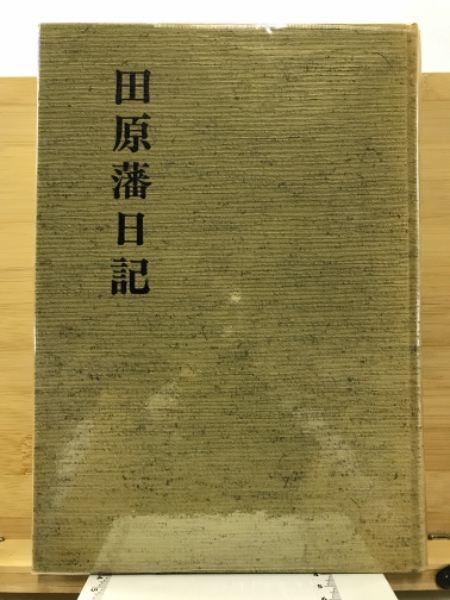 田原藩日記